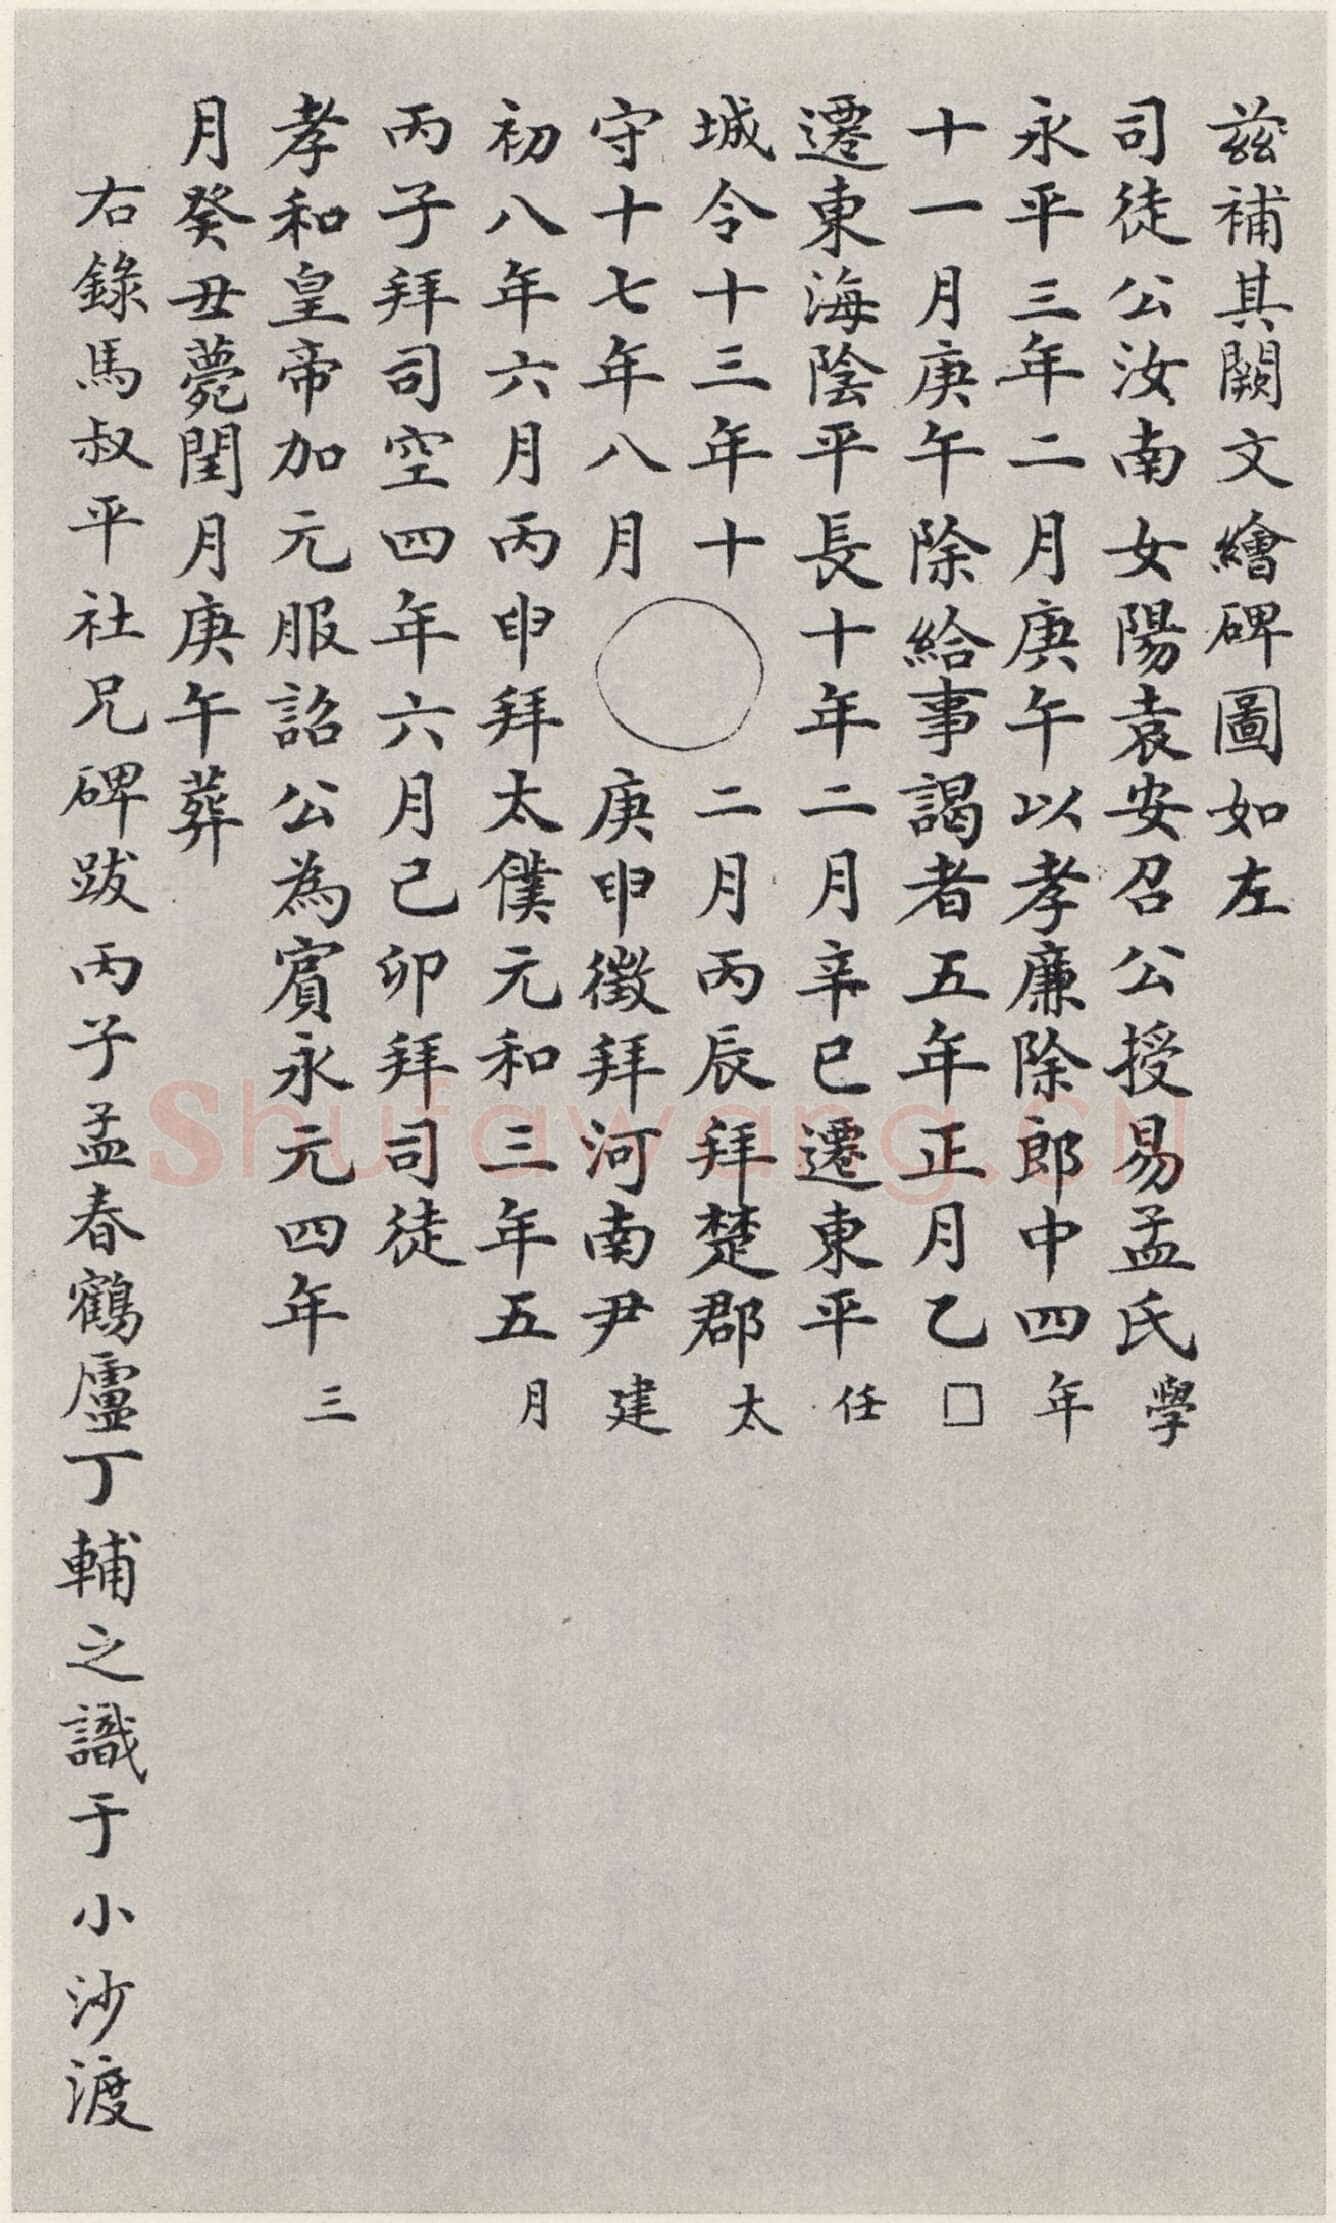 茲補其闕文繪碑圖如左
司徒公汝南女陽袁安召公授易孟氏學
永平三年二月庚午以孝廉除郎中四年
十一月庚午除給事謁者五年正月乙□
遷東海陰平長十年二月辛巳遷東平任
城令十三年十二月丙辰拜楚郡太
守十七年八月庚申徵拜河南尹建
初八年六月丙申拜太僕元和三年五月
丙子拜司空四年六月己卯拜司徒
孝和皇帝加元服詔公為賓永元四年三
月癸丑薨閏月庚午葬
右錄馬叔平社兄碑跋丙子孟春鶴廬丁輔之識于小沙渡
Shufawang.CN